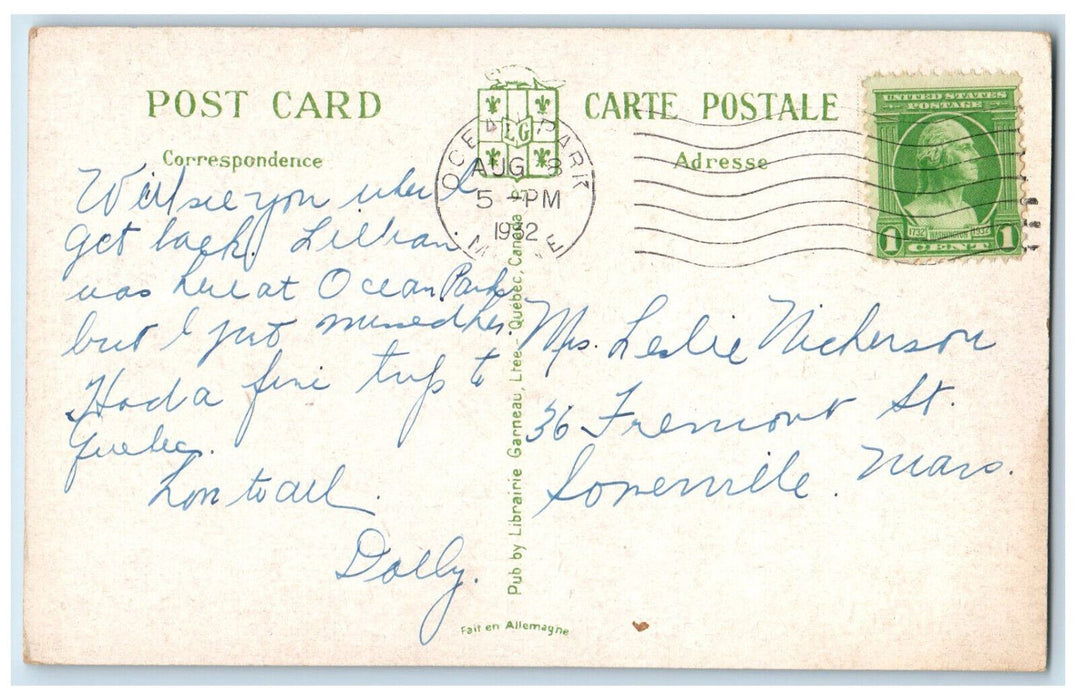 POST CARD
CARTE POSTALE
Correspondence
Adresse
LG
OCEAN PARK
AUG 8
5 - PM
1932
MAINE
UNITED STATES
POSTAGE
1732 WASHINGTON 1932
1 CENT 1
Will see you when I
get back. Lillian
was here at Ocean Park
but I just missed her.
Had a fine trip to
Quebec.
Love to all.
Dolly.
Mrs. Leslie Nickerson
36 Fremont St.
Somerville. Mass.
Pub by Librairie Garneau, Ltee - Quebec, Canada
Fait en Allemagne